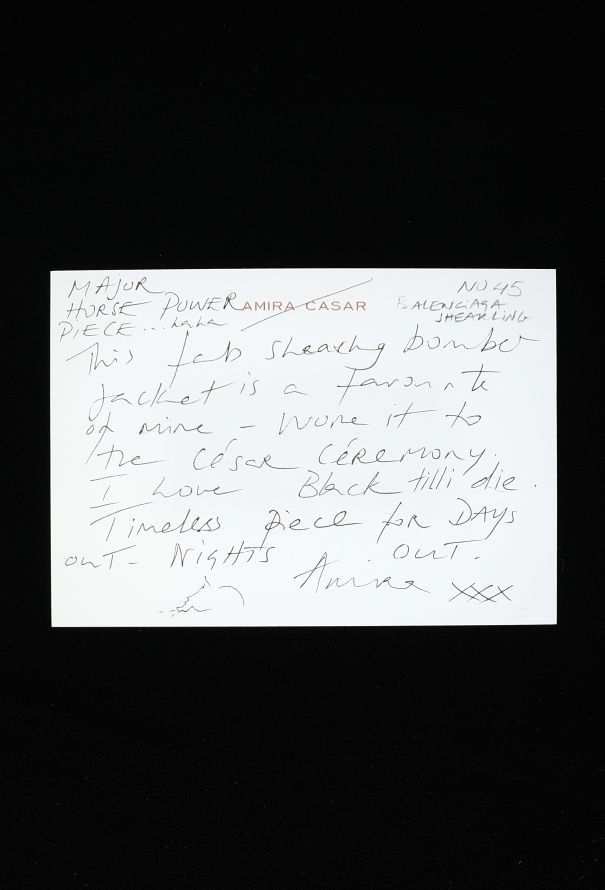 MAJOR
HORSE POWER
PIECE... haha
AMIRA CASAR
NO 45
BALENCIAGA
SHEARLING
This fab shearling bomber
Jacket is a Favourite
of mine - Wore it to
the César CéREMONY.
I Love Black till i die.
Timeless piece for DAYS
OUT - NIGHTS OUT.
Amira XXX